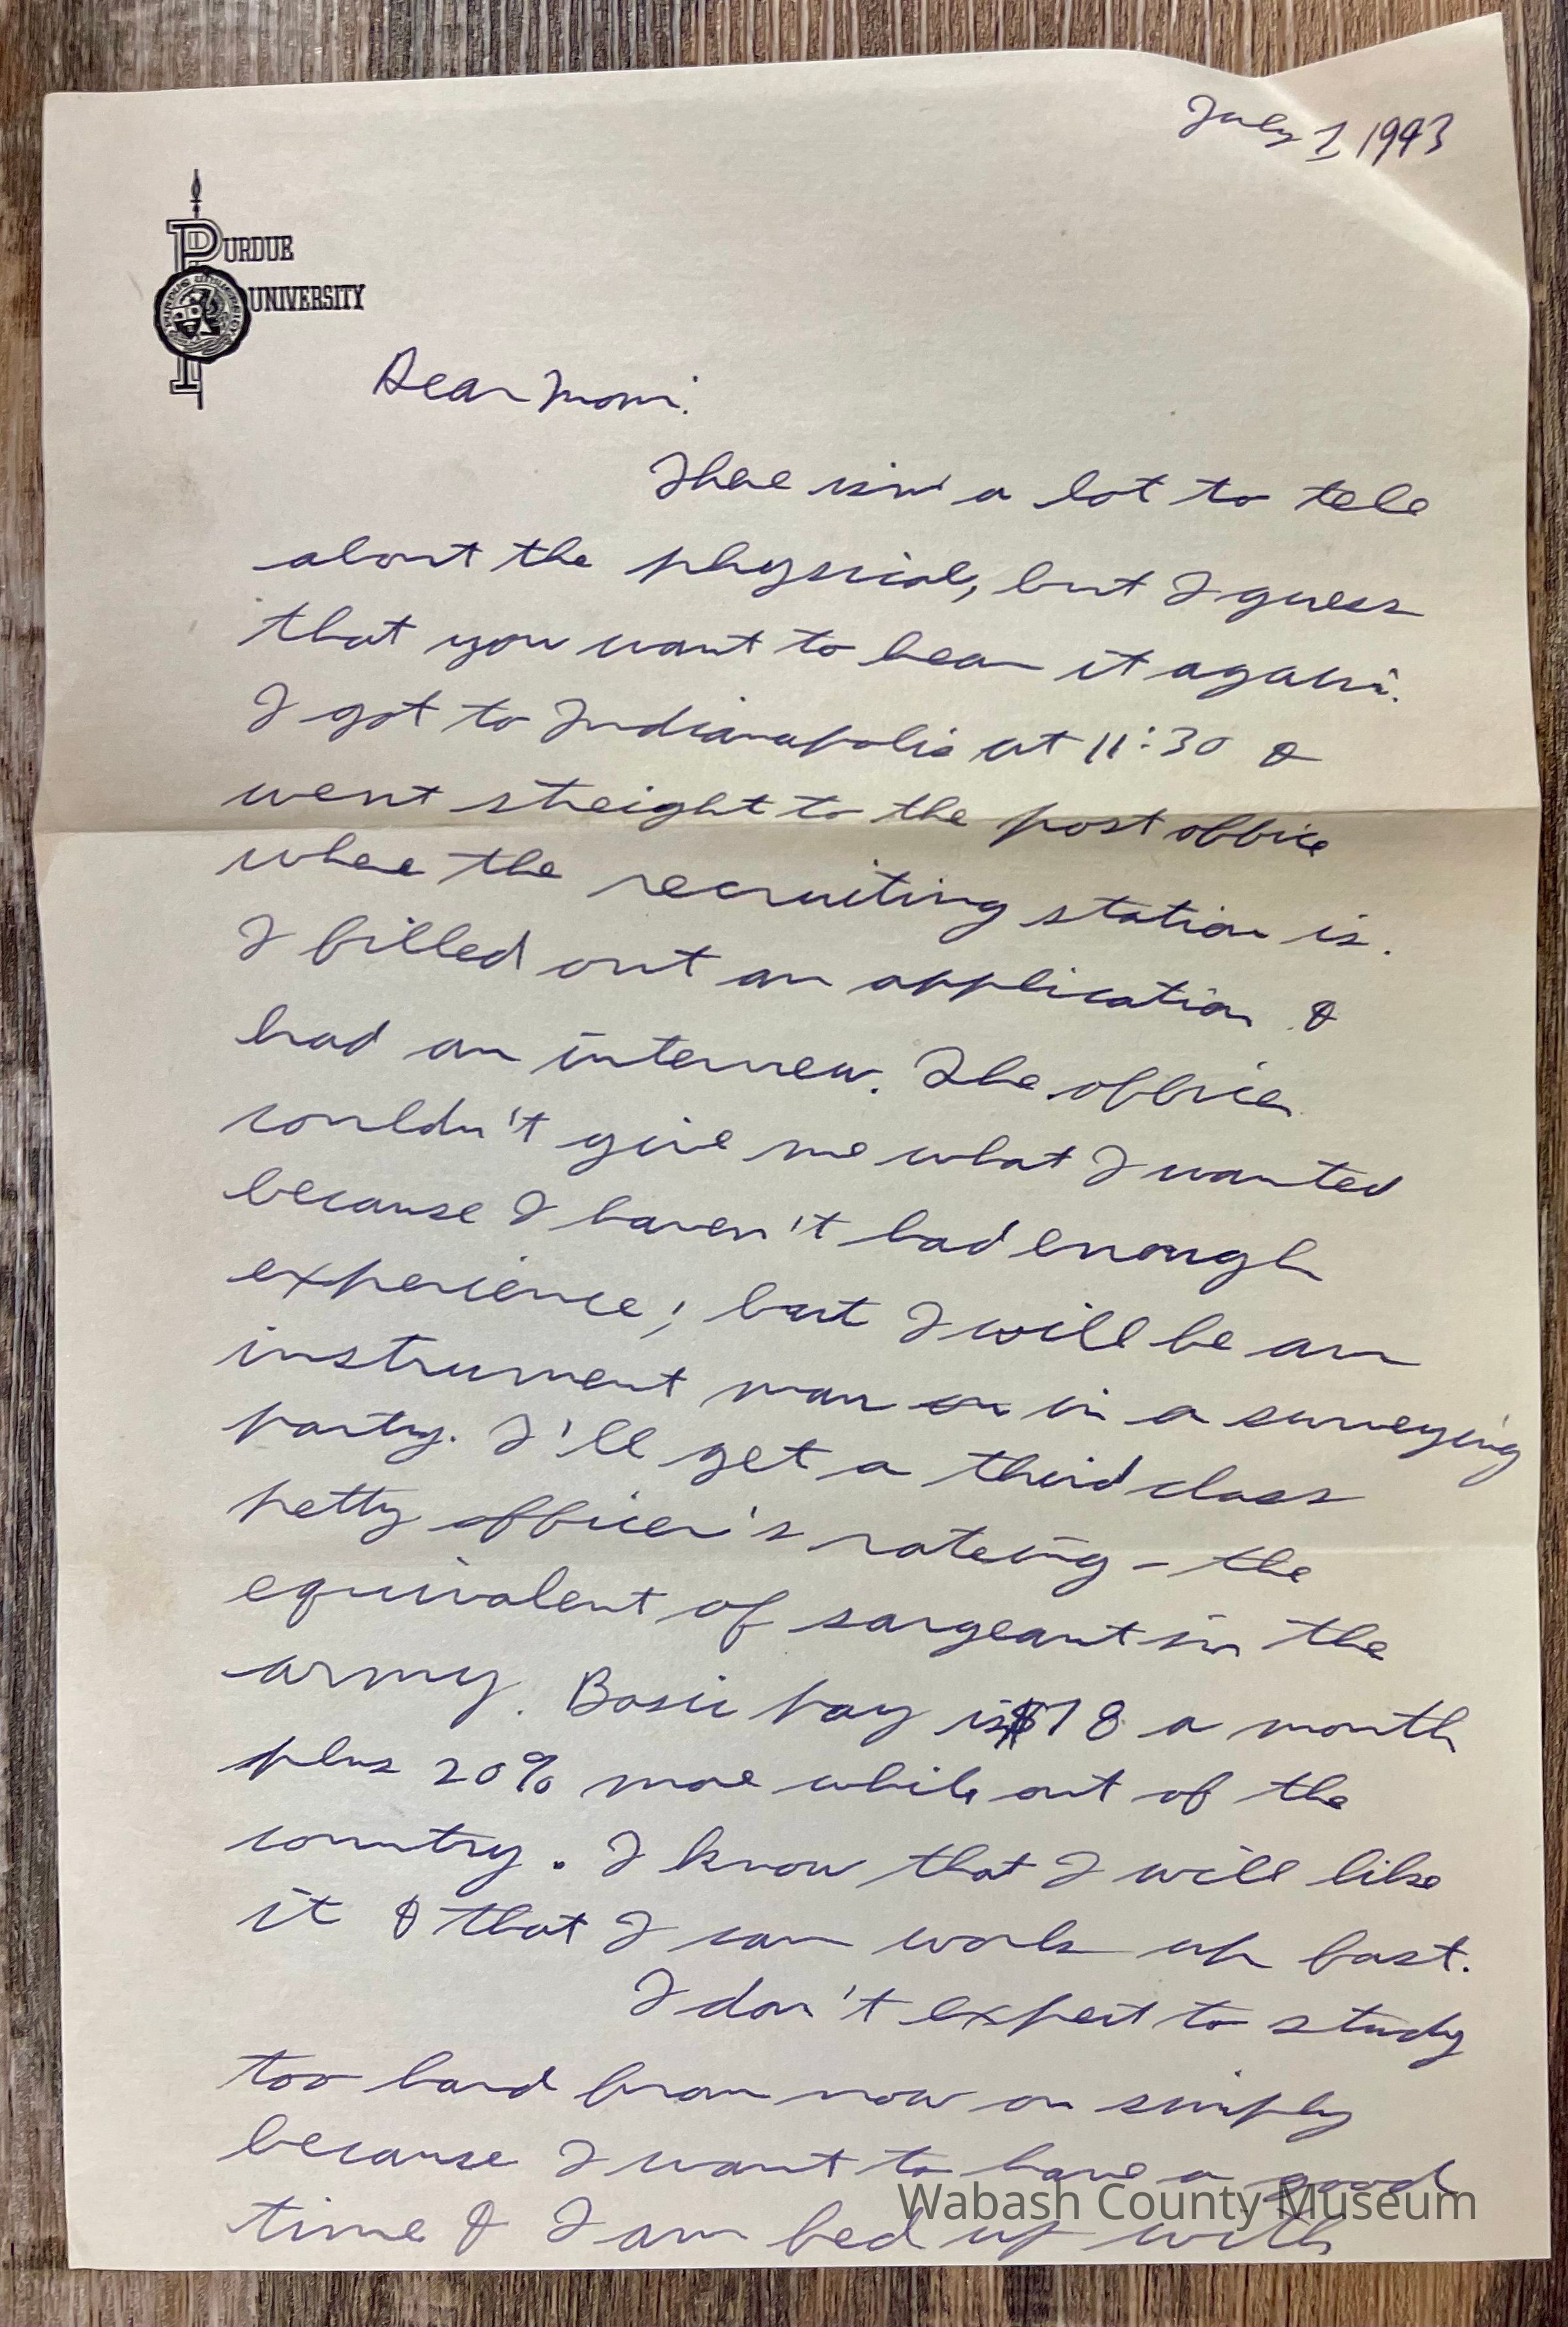 July 1 1943
PURDUE
UNIVERSITY
Dear Mom:
There isn't a lot to tell
about the physical, but I guess
that you want to hear it again.
I got to Indianapolis at 11:30 &
went streight to the post office
where the recruiting station is.
I filled out an application &
had an interview. The officer
couldn't give me what I wanted
because I haven't had enough
experience; but I will be an
instrument man on in a surveying
party. I'll get a third class
petty officer's rateing - the
equivalent of sargeant in the
army. Basic pay is $78 a month
plus 20% more while out of the
country. I know that I will like
it & that I can work up fast.
I don't expect to study
too hard from now on simply
because I want to have a good
time & I am fed up with
Wabash County Museum